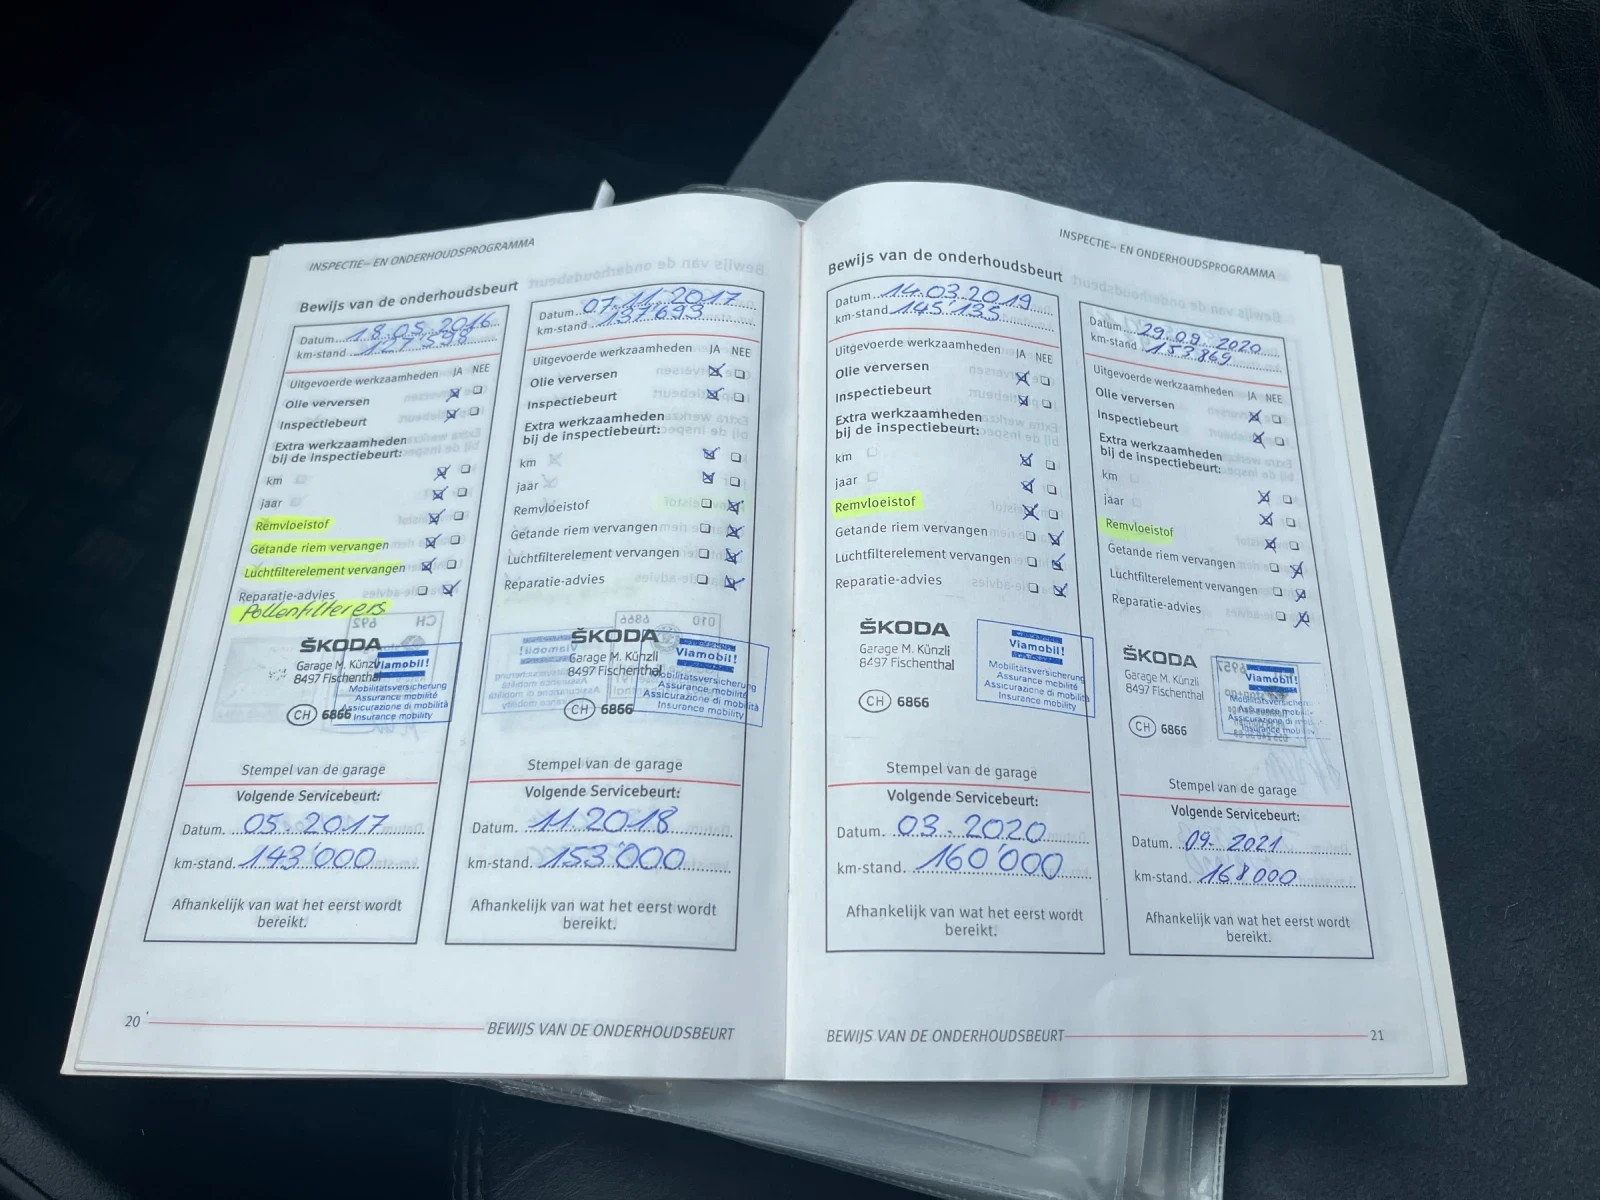 INSPECTIE– EN ONDERHOUDSPROGRAMMA
Bewijs van de onderhoudsbeurt
Datum 18.05.2016
km-stand 127'598
Uitgevoerde werkzaamheden JA NEE
Olie verversen
Inspectiebeurt
Extra werkzaamheden
bij de inspectiebeurt:
km
jaar
Remvloeistof
Getande riem vervangen
Luchtfilterelement vervangen
Reparatie-advies
Pollenfilter ers
ŠKODA
Garage M. Künzli
8497 Fischenthal
CH 6866
Viamobil!
Mobilitätsversicherung
Assurance mobilité
Assicurazione di mobilità
Insurance mobility
Stempel van de garage
Volgende Servicebeurt:
Datum. 05.2017
km-stand. 143'000
Afhankelijk van wat het eerst wordt
bereikt.
Datum 07.11.2017
km-stand 137693
Uitgevoerde werkzaamheden JA NEE
Olie verversen
Inspectiebeurt
Extra werkzaamheden
bij de inspectiebeurt:
km
jaar
Remvloeistof
Getande riem vervangen
Luchtfilterelement vervangen
Reparatie-advies
ŠKODA
Garage M. Künzli
8497 Fischenthal
CH 6866
Viamobil!
Mobilitätsversicherung
Assurance mobilité
Assicurazione di mobilità
Insurance mobility
Stempel van de garage
Volgende Servicebeurt:
Datum. 11.2018
km-stand. 153'000
Afhankelijk van wat het eerst wordt
bereikt.
20
BEWIJS VAN DE ONDERHOUDSBEURT
INSPECTIE– EN ONDERHOUDSPROGRAMMA
Bewijs van de onderhoudsbeurt
Datum 14.03.2019
km-stand 145'135
Uitgevoerde werkzaamheden JA NEE
Olie verversen
Inspectiebeurt
Extra werkzaamheden
bij de inspectiebeurt:
km
jaar
Remvloeistof
Getande riem vervangen
Luchtfilterelement vervangen
Reparatie-advies
ŠKODA
Garage M. Künzli
8497 Fischenthal
CH 6866
Viamobil!
Mobilitätsversicherung
Assurance mobilité
Assicurazione di mobilità
Insurance mobility
Stempel van de garage
Volgende Servicebeurt:
Datum. 03.2020
km-stand. 160'000
Afhankelijk van wat het eerst wordt
bereikt.
Datum 29.09.2020
km-stand 153'869
Uitgevoerde werkzaamheden JA NEE
Olie verversen
Inspectiebeurt
Extra werkzaamheden
bij de inspectiebeurt:
km
jaar
Remvloeistof
Getande riem vervangen
Luchtfilterelement vervangen
Reparatie-advies
ŠKODA
Garage M. Künzli
8497 Fischenthal
CH 6866
Viamobil!
Stempel van de garage
Volgende Servicebeurt:
Datum. 09.2021
km-stand. 168000
Afhankelijk van wat het eerst wordt
bereikt.
BEWIJS VAN DE ONDERHOUDSBEURT
21